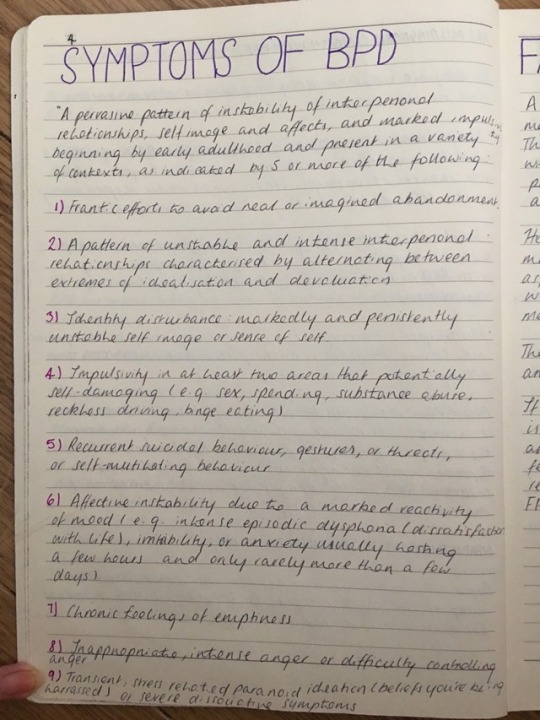 4.
SYMPTOMS OF BPD
"A pervasive pattern of instability of interpersonal
relationships, self image and affects, and marked
beginning by early adulthood and present in a variety
of contexts, as indicated by 5 or more of the following:
1) Frantic efforts to avoid real or imagined abandonment.
2) A pattern of unstable and intense interpersonal
relationships characterised by alternating between
extremes of idealisation and devaluation
3) Identity disturbance: markedly and persistently
unstable self image or sense of self.
4) Impulsivity in at least two areas that potentially
self-damaging (e.g sex, spending, substance abuse,
reckless driving, binge eating)
5) Recurrent suicidal behaviour, gestures, or threats,
or self-mutilating behaviour
6) Affective instability due to a marked reactivity
of mood (e.g. intense episodic dysphoria (dissatisfaction
with life), irritability, or anxiety usually lasting
a few hours and only rarely more than a few
days)
7) Chronic feelings of emptiness
8) Inappropriate, intense anger or difficulty controlling
anger
9) Transient, stress related paranoid ideation (beliefs you're being
harrassed) or severe dissociative symptoms